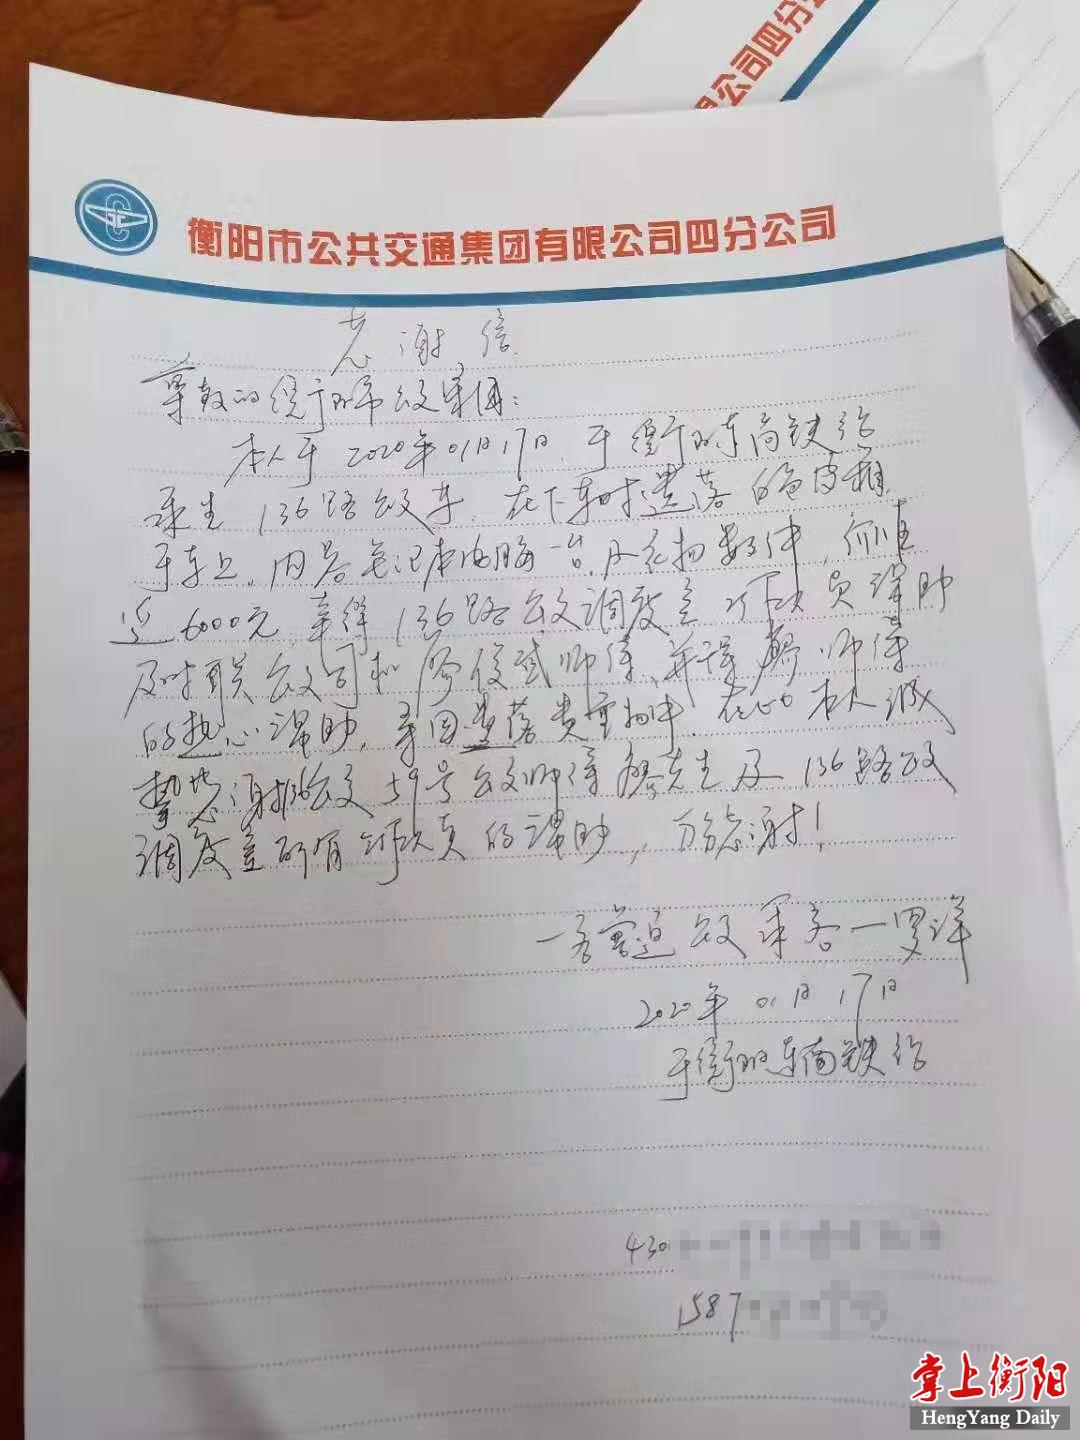 公司四分公
衡阳市公共交通集团有限公司四分公司
感谢信
尊敬的衡阳市公交集团:
本人于2020年01月17日,于衡阳东高铁站
乘坐136路公交车,在下车时遗落白色皮箱
于车上。内容笔记本电脑一台,及衣物数件,价值
近6000元,幸得136路公交调度室工作人员帮助
及时联公司和廖俊斌师傅,并得廖师傅
的热心帮助,寻回遗落贵重物件。在此本人诚
挚感谢136公交59号公交师傅廖先生及136路公交
调度室所有工作人员的帮助,万分感谢!
一名普通公交乘客一罗洋
2020年01月17日
于衡阳东高铁站
430
1587
掌上衡阳
HengYang Daily